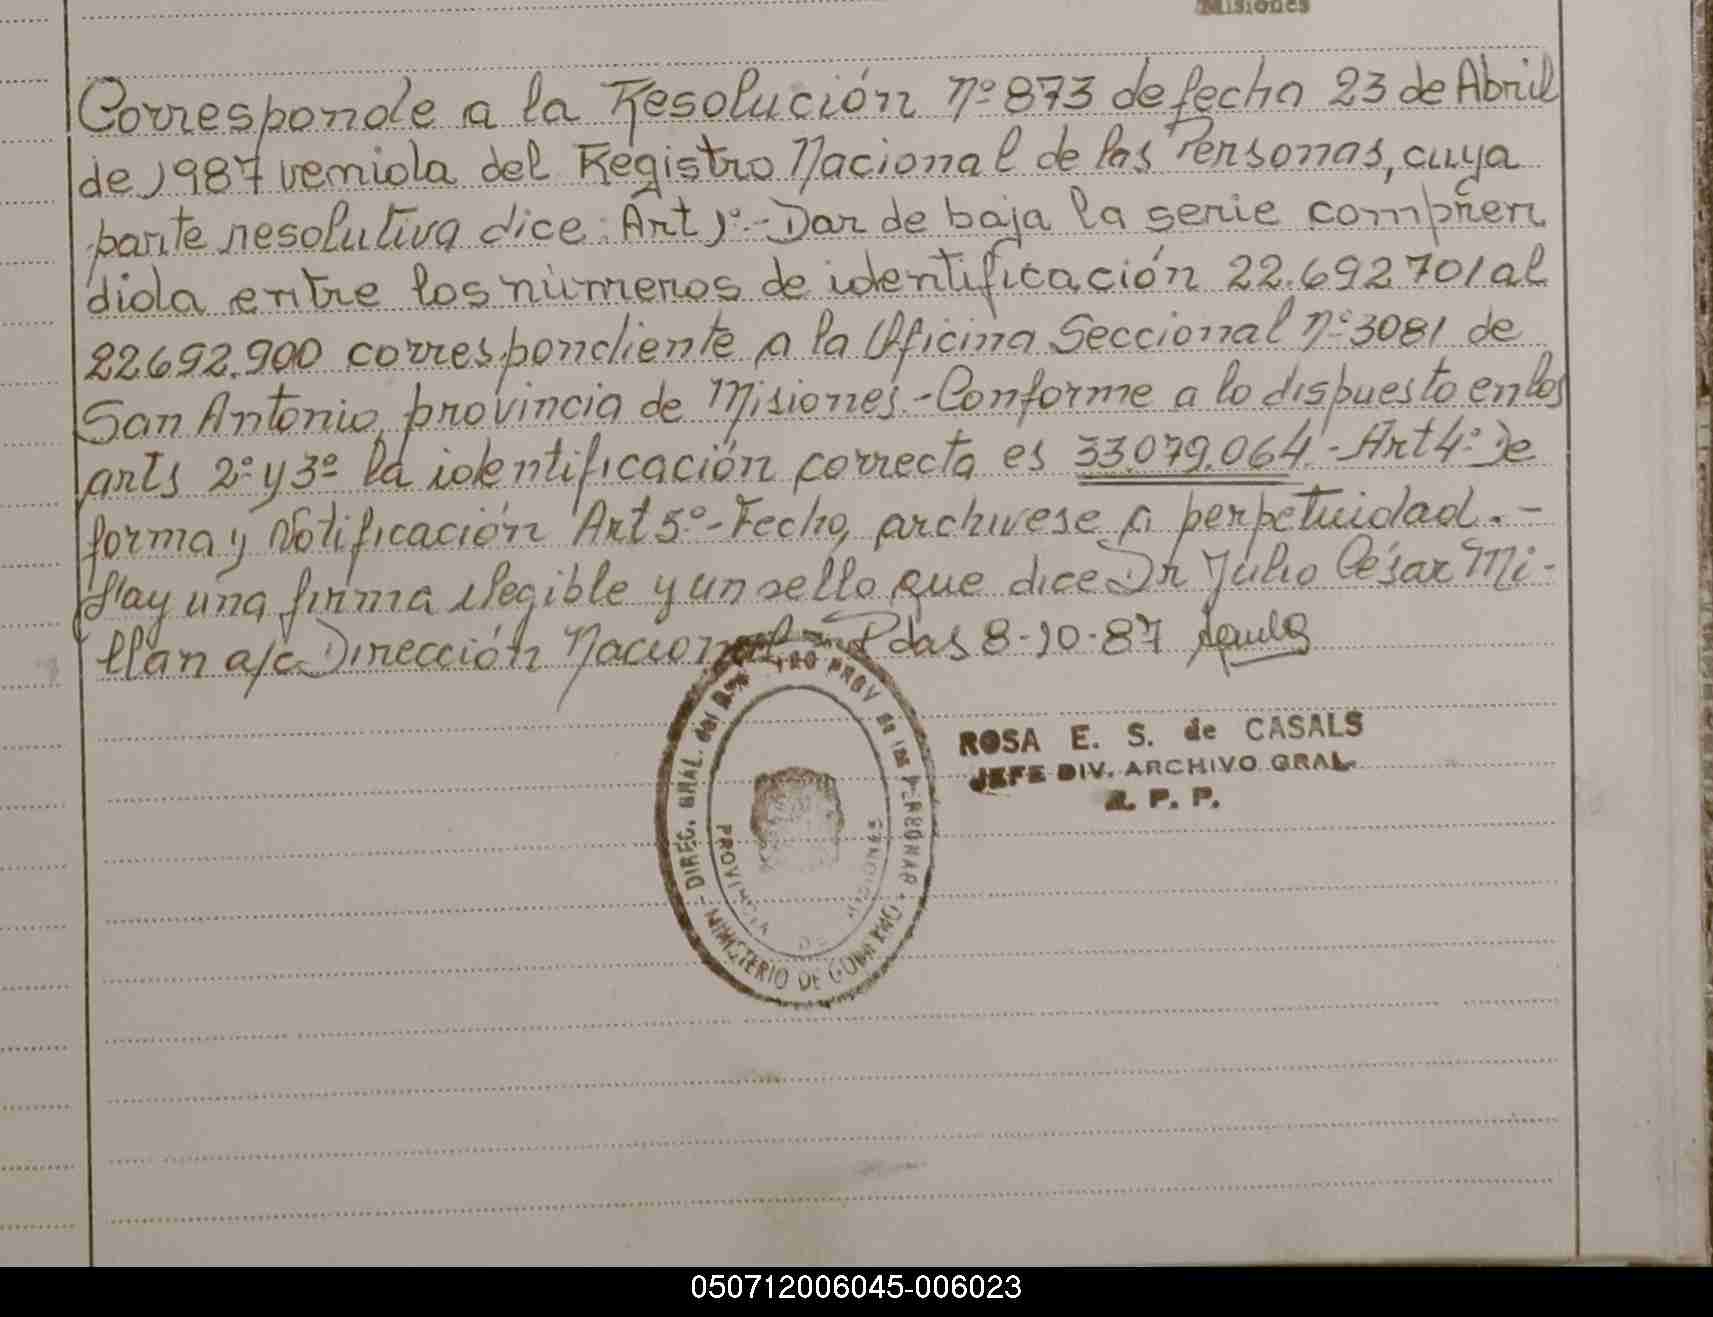 Misiones
Corresponde a la Resolución Nº 873 de fecha 23 de Abril
de 1987 venida del Registro Nacional de las Personas, cuya
parte resolutiva dice: Art 1º.- Dar de baja la serie compren
dida entre los números de identificación 22.692701 al
22692.900 correspondiente a la Oficina Seccional Nº 3081 de
San Antonio, provincia de Misiones.- Conforme a lo dispuesto en los
arts 2º y 3º la identificación correcta es 33.079.064.- Art 4º: De
forma y Notificación Art 5º.- Fecho, archivese a perpetuidad.-
Hay una firma ilegible y un sello que dice Dr Julio César Mi-
llan a/c Dirección Nacional Pdas 8-10-87
DIREC. GRAL. del PROV de las PERSONAS
MINISTERIO DE GOBIERNO
PROVINCIA DE MISIONES
ROSA E. S. de CASALS
JEFE DIV. ARCHIVO GRAL.
R. P. P.
050712006045-006023